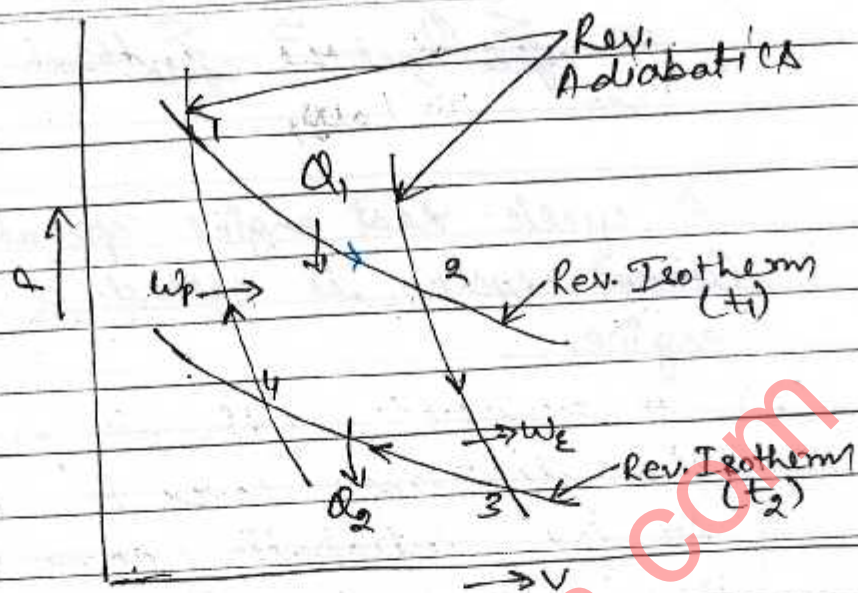 Rev.
Adiabatics
1
Q1
P
2
Rev. Isotherm
(t1)
Wp
4
WE
Rev. Isotherm
(t2)
Q2
3
V
com